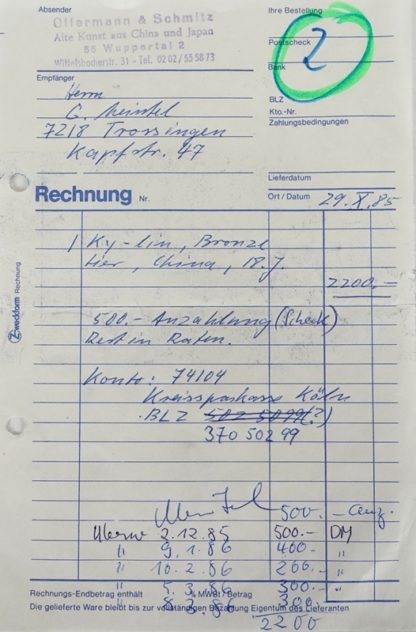 Absender
Ollermann & Schmitz
Alte Kunst aus China und Japan
56 Wuppertal 2
Wittelsbacherstr. 31 - Tel. 0202/555873
Ihre Bestellung
2
Postscheck
Bank
BLZ
Kto.-Nr.
Zahlungsbedingungen
Empfänger
Herrn
G.
7218 Trossingen
Kapfstr. 47
Lieferdatum
Rechnung Nr.
Ort / Datum 29. X. 85
1 Ky-lin, Bronze
tier, China, 18. J.
2200,-
500.- Anzahlung (Scheck)
Rest in Raten.
Konto: 74104
Kreissparkasse Köln
BLZ 502 50 99(?)
370 502 99
Zweckform Rechnung
500.- Anz.
2.12.85 500.- DM
" 9.1.86 400.- "
" 10.2.86 200.- "
" 5.3.86 300.- "
" 300.- "
Rechnungs-Endbetrag enthält % MWSt / Betrag
Die gelieferte Ware bleibt bis zur vollständigen Bezahlung Eigentum des Lieferanten
2200